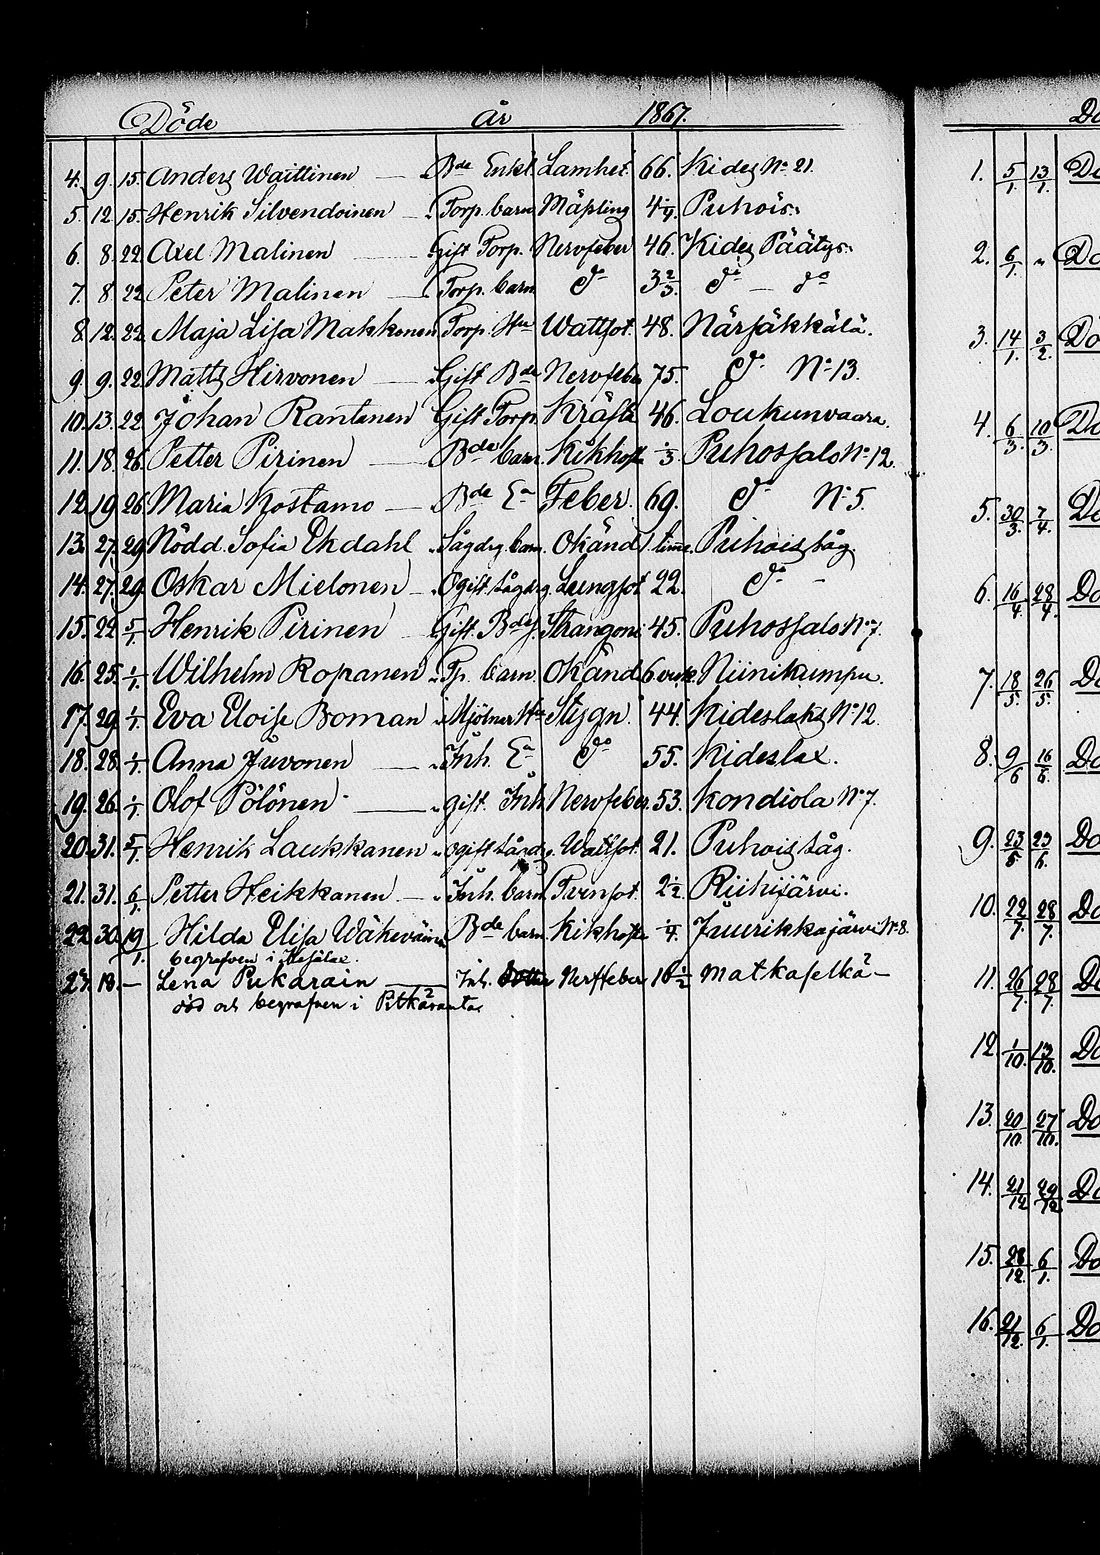 Döde år 1867.
4. 9. 15. Anders Waittinen — Bde Enkl. Lamhet 66. Kides No 21.
5. 12. 15. Henrik Silvendoinen — Torp. barn Mäßling 4 1/4. Puhois.
6. 8. 22. Axel Malinen — Gift Torp. Nervfeber 46. Kides Päätys.
7. 8. 22. Peter Malinen — Torp. barn do 3 2/3. do — do
8. 12. 22. Maja Lisa Makkonen Torp. Hu Wattsot. 48. Närsäkkälä.
9. 9. 22. Matts Hirvonen — Gift Bde Nervfeber 75. do No 13.
10. 13. 22. Johan Rantanen Gift Torp. Kräfta 46. Loukunvaara.
11. 18. 26. Petter Pirinen — Bde barn. Kikhosta 1/3. Puhossalo No 12.
12. 19. 26. Maria Kostamo — Bde Ea Feber. 69. do No 5.
13. 27. 29. Nödd. Sofia Ekdahl Sågdrg. barn. Okänd 1 timme. Puhois såg.
14. 27. 29. Oskar Mielonen — Ogift sågdrg. Lungsot 22. do
15. 22. 5/1. Henrik Pirinen — Gift. Bdeg. Strangoni 45. Puhossalo No 7.
16. 25. 1/1. Wilhelm Ropanen Tp. barn. Okänd 6 veck. Niinikumpu.
17. 29. 1/1. Eva Eloise Boman Mjölnar Hu Stygn. 44. Kideslaks No 12.
18. 28. 1/1. Anna Juvonen — Inh. Ea do 55. Kideslax.
19. 26. 1/1. Olof Pölönen — gift. Inh. Nervfeber. 53. Kondiola No 7.
20. 31. 5/1. Henrik Laukkanen ogift sågd. Wattsot. 21. Puhois såg.
21. 31. 6/1. Petter Heikkanen — Inh. barn Tvinsot. 2 1/2. Riihijärvi.
22. 30. 19/1. Hilda Elisa Wäkeväinen Bde barn. Kikhosta 1/4. Juurikkajärvi No 8.
begrafven i Kesälax.
23. 18. — Lena Pukarain — Inh. Nerffeber 16 1/2 Matkaselkä —
död och begrafven i Pitkäranta
Do
1. 5/1. 13/1. Do
2. 6/1. " Do
3. 14/1. 3/2. Do
4. 6/3. 10/3. Do
5. 30/3. 7/4. Do
6. 16/4. 28/4. Do
7. 18/5. 26/5. Do
8. 9/6 16/6. Do
9. 23/6 23/6. Do
10. 22/7. 28/7. Do
11. 26/7. 28/7. Do
12. 1/10. 13/10. Do
13. 20/10 27/10. Do
14. 21/12 29/12 Do
15. 28/12. 6/1. Do
16. 21/12. 6/1. Do